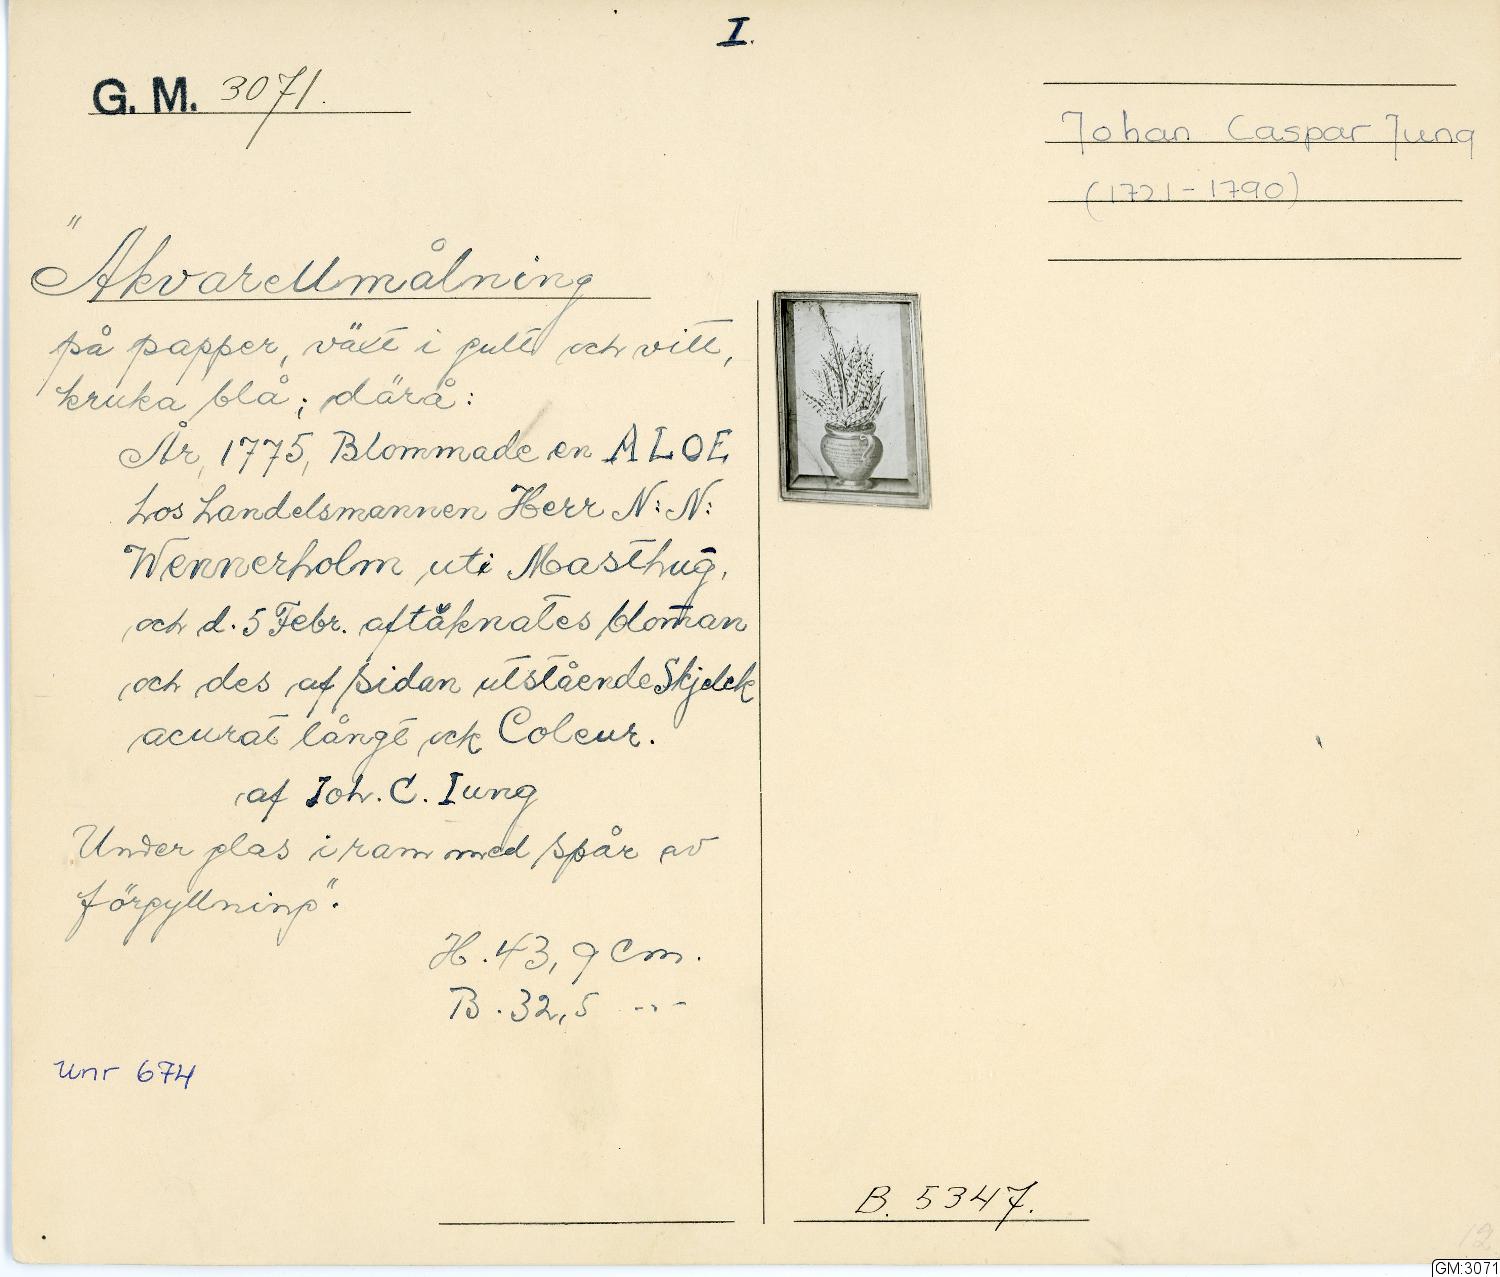 I.
G. M. 3071.
Johan Caspar Jung
(1721-1790)
"Akvarellmålning
på papper, växt i gult och vitt,
kruka blå; därå:
År, 1775, Blommade en ALOE
hos handelsmannen Herr N: N:
Wennerholm uti Masthug,
och d. 5 Febr. aftåknates blom̄an
och des af sidan utstående Skjelck
acurat långt ock Coleur.
af Ioh. C. Iung
Under glas i ram med spår av
förgyllning".
H. 43,9 cm.
B. 32,5 -"-
Unr 674
B. 5347.
12
GM:3071